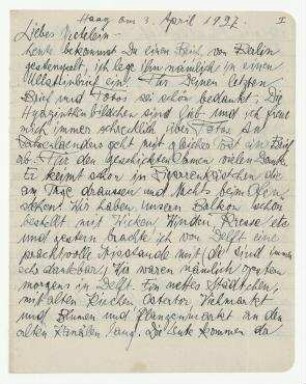 Haag am 3. April 1937. I
Liebes
heute bekommst Du einen Brief von Berlin
gestempelt, ich lege ihn nämlich in einen
Ullsteinbrief ein! Für Deinen letzten
Brief und Fotos sei schön bedankt; Die
Hyazinthenbildchen sind lieb und ich freue
mich immer schrecklich über Fotos. An
geht mit gleicher Post ein Brief
ab. Für den geschickten Samen vielen Dank.
Er keimt schon in Zigarrenkistchen die
am Tage draussen und Nachts beim Ofen
stehen! Wir haben unseren Balkon schön
bestellt mit Wicken, Winden, Kresse etc
und gestern brachte ich von Delft eine
prachtvolle mit (die sind immer
so dankbar) Wir waren nämlich gestern
morgens in Delft. Ein nettes Städtchen,
mit alten Kirchen, Viehmarkt
und Blumen und Pflanzenmarkt an den
alten Kanälen lang. Die Leute kommen da